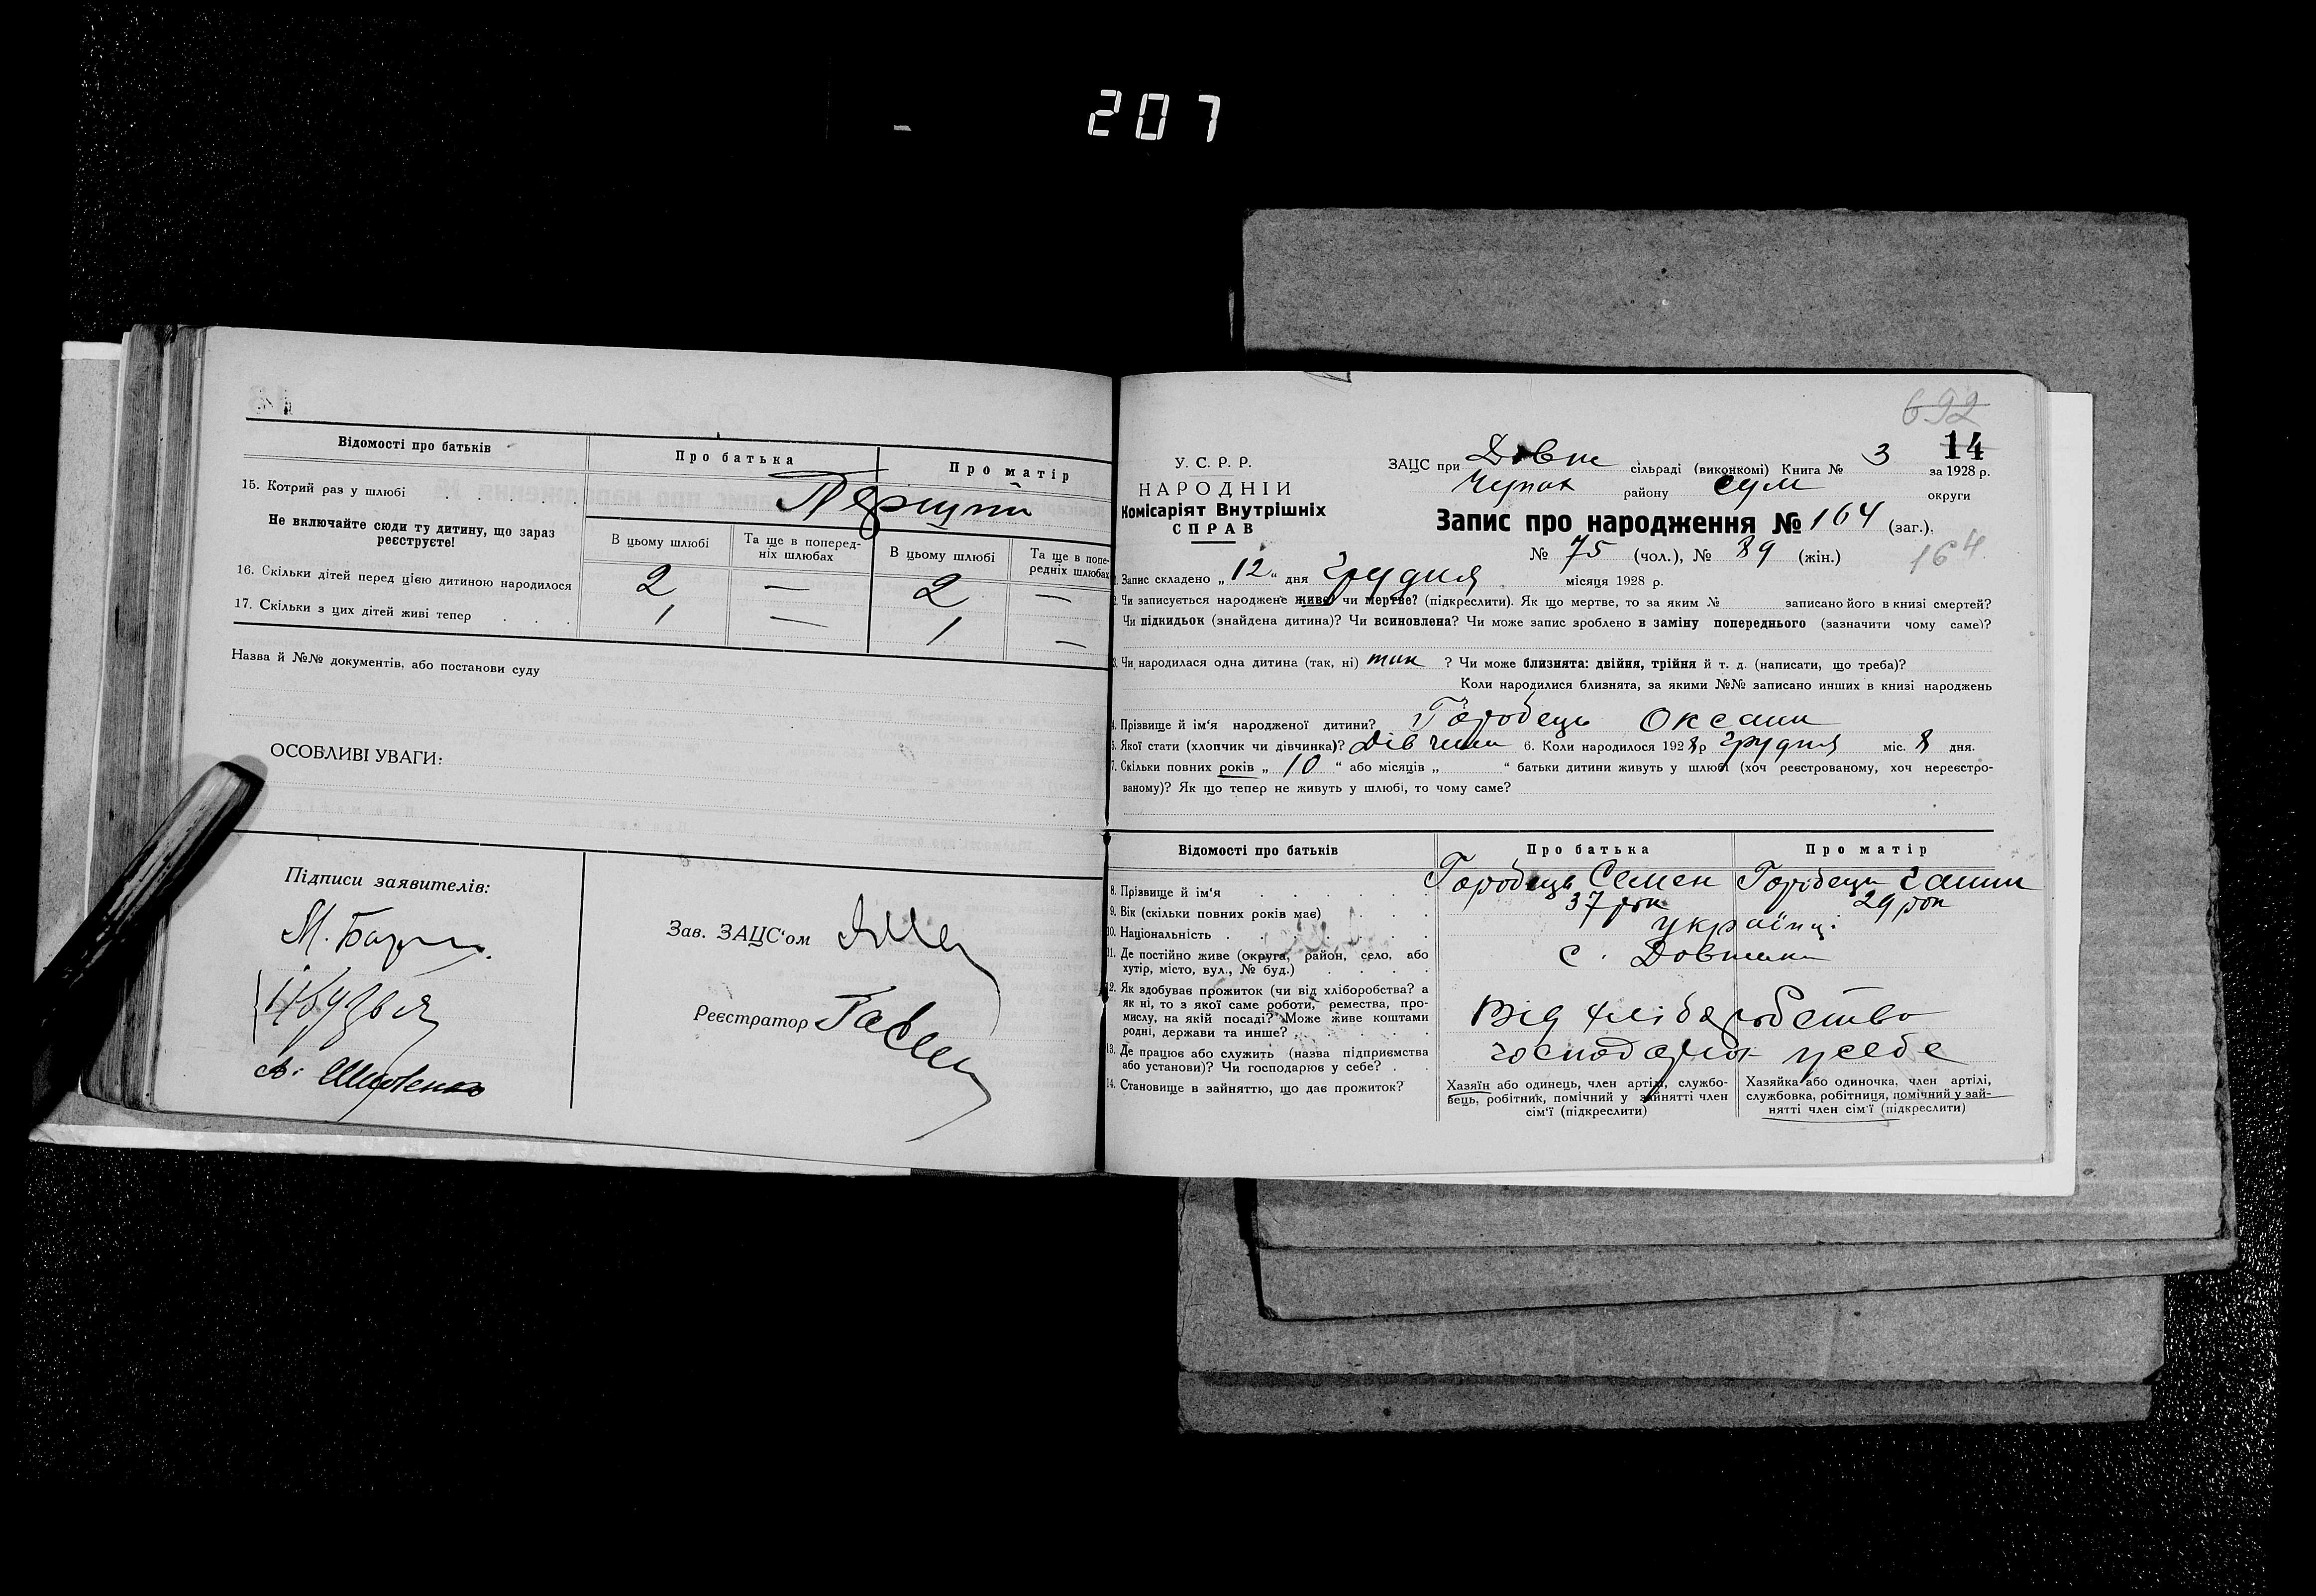 207
Відомості про батьків
Про батька
Про матір
15. Котрий раз у шлюбі
Не включайте сюди ту дитину, що зараз
реєструєте!
В цьому шлюбі
Та ще в поперед-
ніх шлюбах
В цьому шлюбі
Та ще в попе-
редніх шлюбах
16. Скільки дітей перед цією дитиною народилося 2 — 2 —
17. Скільки з цих дітей живі тепер 1 — 1 —
Назва й №№ документів, або постанови суду
ОСОБЛИВІ УВАГИ:
Підписи заявителів:
Зав. ЗАЦС'ом
Реєстратор
692
14
У. С. Р. Р.
НАРОДНІЙ
Комісаріят Внутрішніх
СПРАВ
ЗАЦС при Довж сільраді (виконкомі) Книга № 3 за 1928 р.
району Сум округи
Запис про народження № 164 (заг.).
№ 75 (чол.), № 89 (жін.)
164
1. Запис складено „ 12 “ дня Грудня місяця 1928 р.
2. Чи записується народжене живе чи мертве? (підкреслити). Як що мертве, то за яким № записано його в книзі смертей?
Чи підкидьок (знайдена дитина)? Чи всиновлена? Чи може запис зроблено в заміну попереднього (зазначити чому саме)?
3. Чи народилася одна дитина (так, ні) так ? Чи може близнята: двійня, трійня й т. д. (написати, що треба)?
Коли народилися близнята, за якими №№ записано инших в книзі народжень
4. Прізвище й ім‘я народженої дитини? Горобець Оксана
5. Якої стати (хлопчик чи дівчинка)? Дівчина 6. Коли народилося 1928 р Грудня міс. 8 дня.
7. Скільки повних років „ 10 “ або місяців „ “ батьки дитини живуть у шлюбі (хоч реєстрованому, хоч нереєстро-
ваному)? Як що тепер не живуть у шлюбі, то чому саме?
Відомості про батьків
Про батька
Про матір
8. Прізвище й ім‘я Горобець Семен Горобець Ганна
9. Вік (скільки повних років має) 37 рок 29 рок
10. Національність українці
11. Де постійно живе (округа, район, село, або
хутір, місто, вул., № буд.)
с.
12. Як здобуває прожиток (чи від хліборобства? а
як ні, то з якої саме роботи, ремества, про-
мислу, на якій посаді? Може живе коштами
родні, держави та инше?
Від хліборобства
13. Де працює або служить (назва підприємства
або установи)? Чи господарює у себе?
у себе
14. Становище в зайняттю, що дає прожиток?
Хазяїн або одинець, член артілі, службо-
вець, робітник, помічний у зайнятті член
сім‘ї (підкреслити)
Хазяйка або одиночка, член артілі,
службовка, робітниця, помічний у зай-
нятті член сім‘ї (підкреслити)